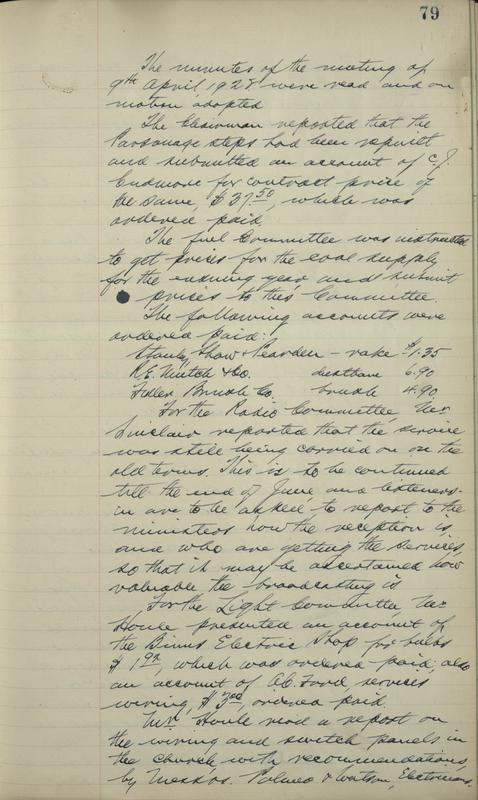 79
The minutes of the meeting of
9th April 1928 were read and on
motion adopted
The Chairman reported that the
Parsonage steps had been rebuilt
and submitted an account of C. J.
for contract price of
the same, $37.50, which was
ordered paid.
The fuel Committee was instructed
to get prices for the coal supply
for the ensuing year and submit
prices to this Committee.
The following accounts were
ordered paid:
Stanley Shaw & Pearden - rake $1.35
R.E. Mutch & Co. dustbane 6.90
Fuller Brush Co. brush 4.90
For the Radio Committee, Mr.
Sinclair reported that the service
was still being carried on on the
old terms. This is to be continued
till the end of June, and listeners-
in are to be asked to report to the
ministers how the reception is,
and who are getting the services,
so that it may be ascertained how
valuable the broadcasting is.
For the Light Committee, Mr.
Houle presented an account of
the Binns Electric Shop for bulbs
$1, which was ordered paid; also
an account of Ford, services
wiring, $3.00, ordered paid.
Mr. Houle read a report on
the wiring and switch panels in
the church with recommendations,
by Messrs. Palmer & Watson, Electricians.